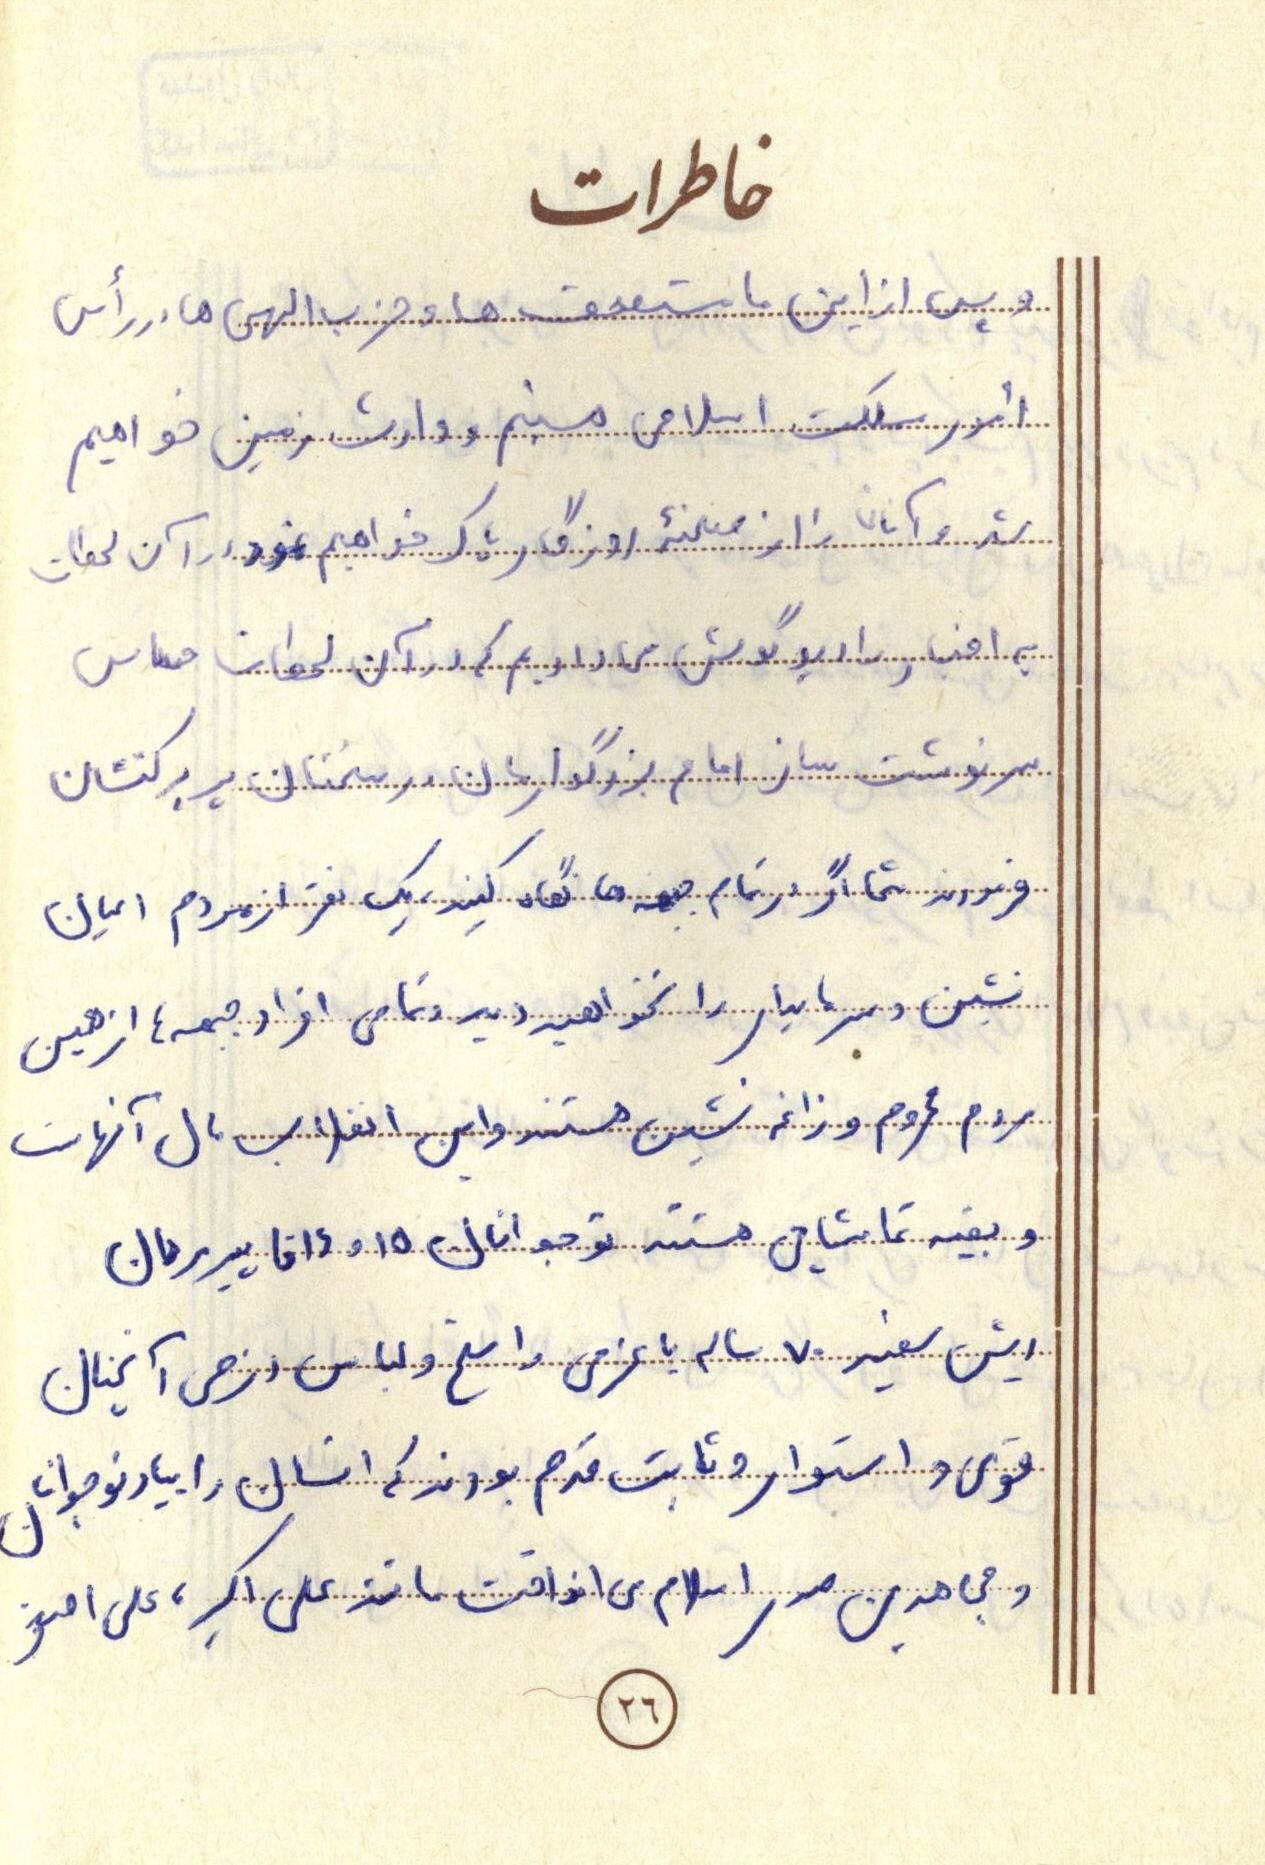 خاطرات
و پس از این ما مستضعف ها و حزب الهی ها در رأس
امور مملکت اسلامی هستیم و وارث زمین خواهیم
شد و آنان را از صحنهٔ روزگار پاک خواهیم نمود در آن لحظات
به اخبار رادیو گوش می دادیم که در آن لحظات حساس
سرنوشت ساز امام بزرگوارمان در سخنان پر برکتشان
فرمودند شما اگر در تمام جبهه ها نگاه کنید، یک نفر از مردم اعیان
نشین و سرمایدار را نخواهید دید و تمامی افراد جبهه ها از همین
مردم محروم و زاغه نشین هستند و این انقلاب مال آنهاست
و بقیه تماشاچی هستند نوجوانان ۱۵ و ۱۶ تا پیرمردهان
ریش سفید ۷۰ ساله با عزمی راسخ و لباس رزمی آنچنان
قوی و استوار و ثابت قدم بودند که انسان را بیاد نوجوانان
و مجاهدین صدر اسلام می انداخت مانند علی اکبر، علی اصغر
۲۶